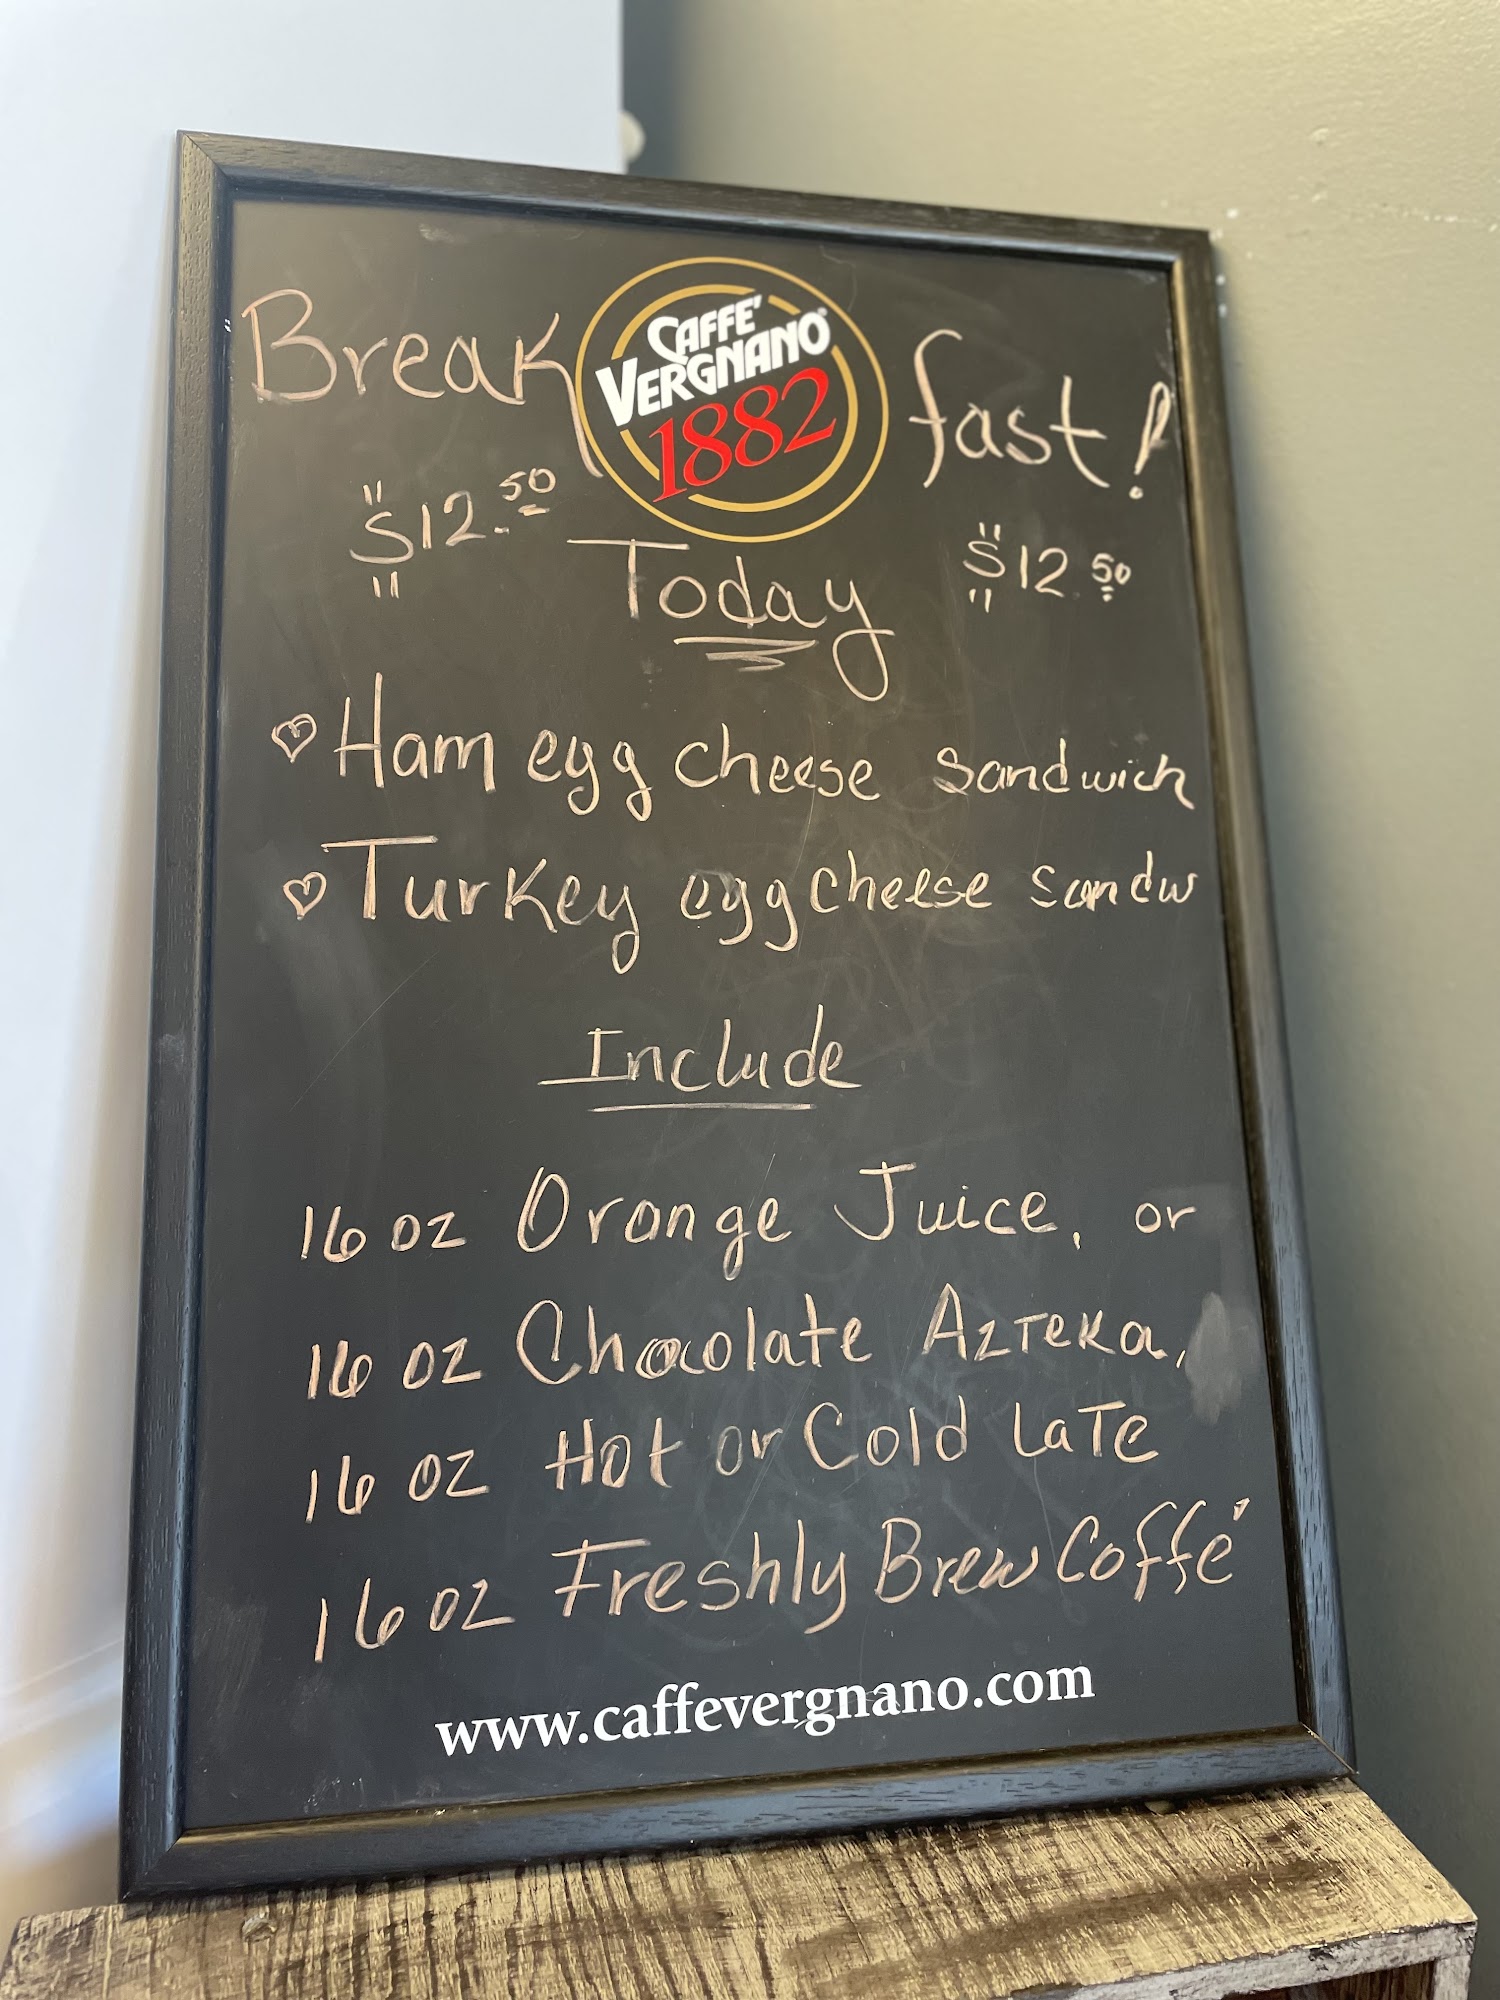 Break fast!
CAFFE'
VERGNANO
1882
$12.50 $12.50
Today
Ham egg cheese sandwich
Turkey egg cheese sandw
Include
16 oz Orange Juice, or
16 oz Chocolate Azteka,
16 oz Hot or Cold Late
16 oz Freshly Brew Coffé
www.caffevergnano.com